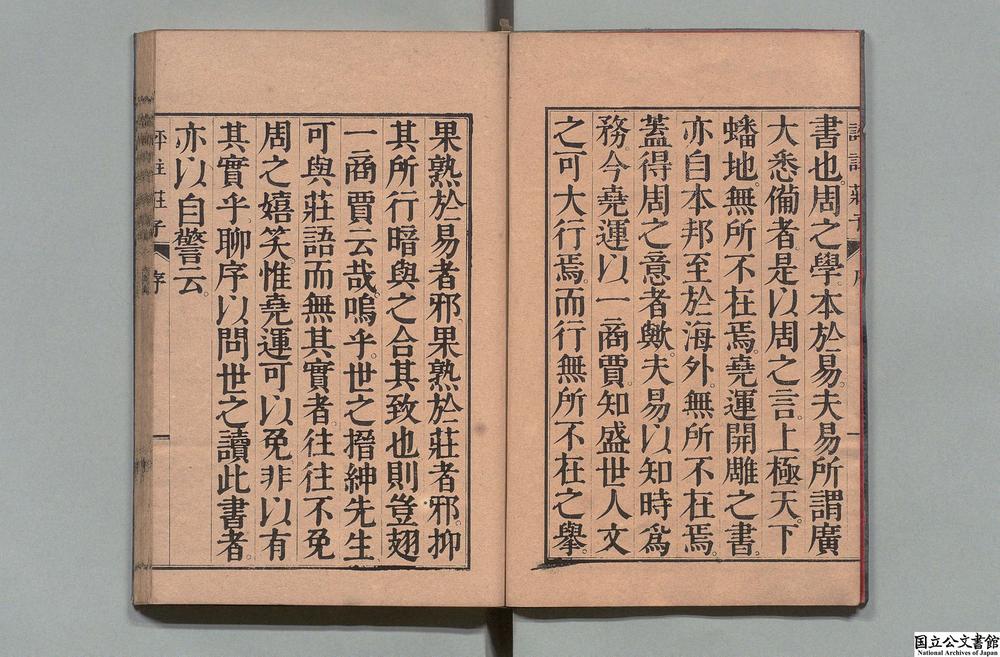 書也。周之學。本於易。夫易所謂廣
大悉備者。是以周之言。上極天。下
蟠地。無所不在焉。堯運開雕之書。
亦自本邦至於海外。無所不在焉。
蓋得周之意者歟。夫易以知時爲
務。今堯運以一商賈。知盛世人文
之可大行焉。而行無所不在之擧。
果熟於易者邪。果熟於莊者邪。抑
其所行暗與之合其致也則豈翅
一商賈云哉。嗚乎。世之搢紳先生
可與莊語而無其實者。往往不免
周之嬉笑惟堯運可以免非以有
其實乎。聊序以問世之讀此書者。
亦以自警云。
評註莊子 序
国立公文書館
National Archives of Japan